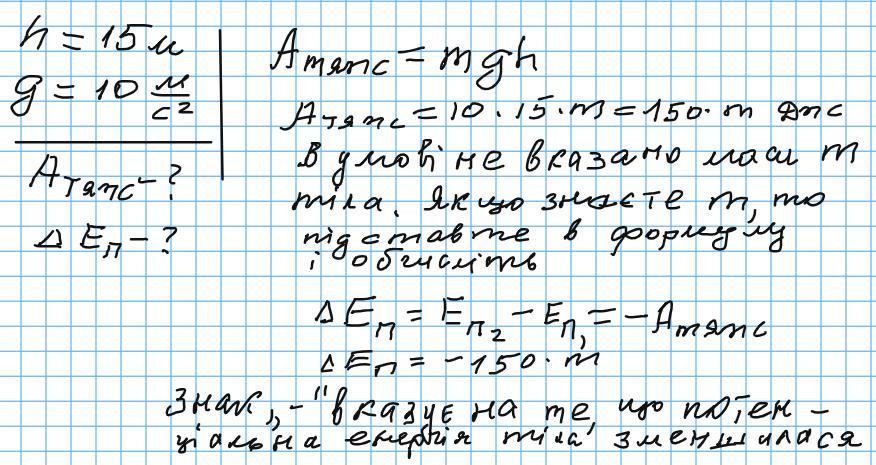 h = 15 м
g = 10 м/с²
Aтяж - ?
Δ Eп - ?
Aтяж = mgh
Aтяж = 10 · 15 · m = 150 · m Дж
В умові не вказано маси m
тіла. Якщо знаєте m, то
підставте в формулу
і обчисліть
Δ Eп = Eп₂ - Eп₁ = - Aтяж
Δ Eп = - 150 · m
Знак „-" вказує на те, що потен -
ціальна енергія тіла зменшилася